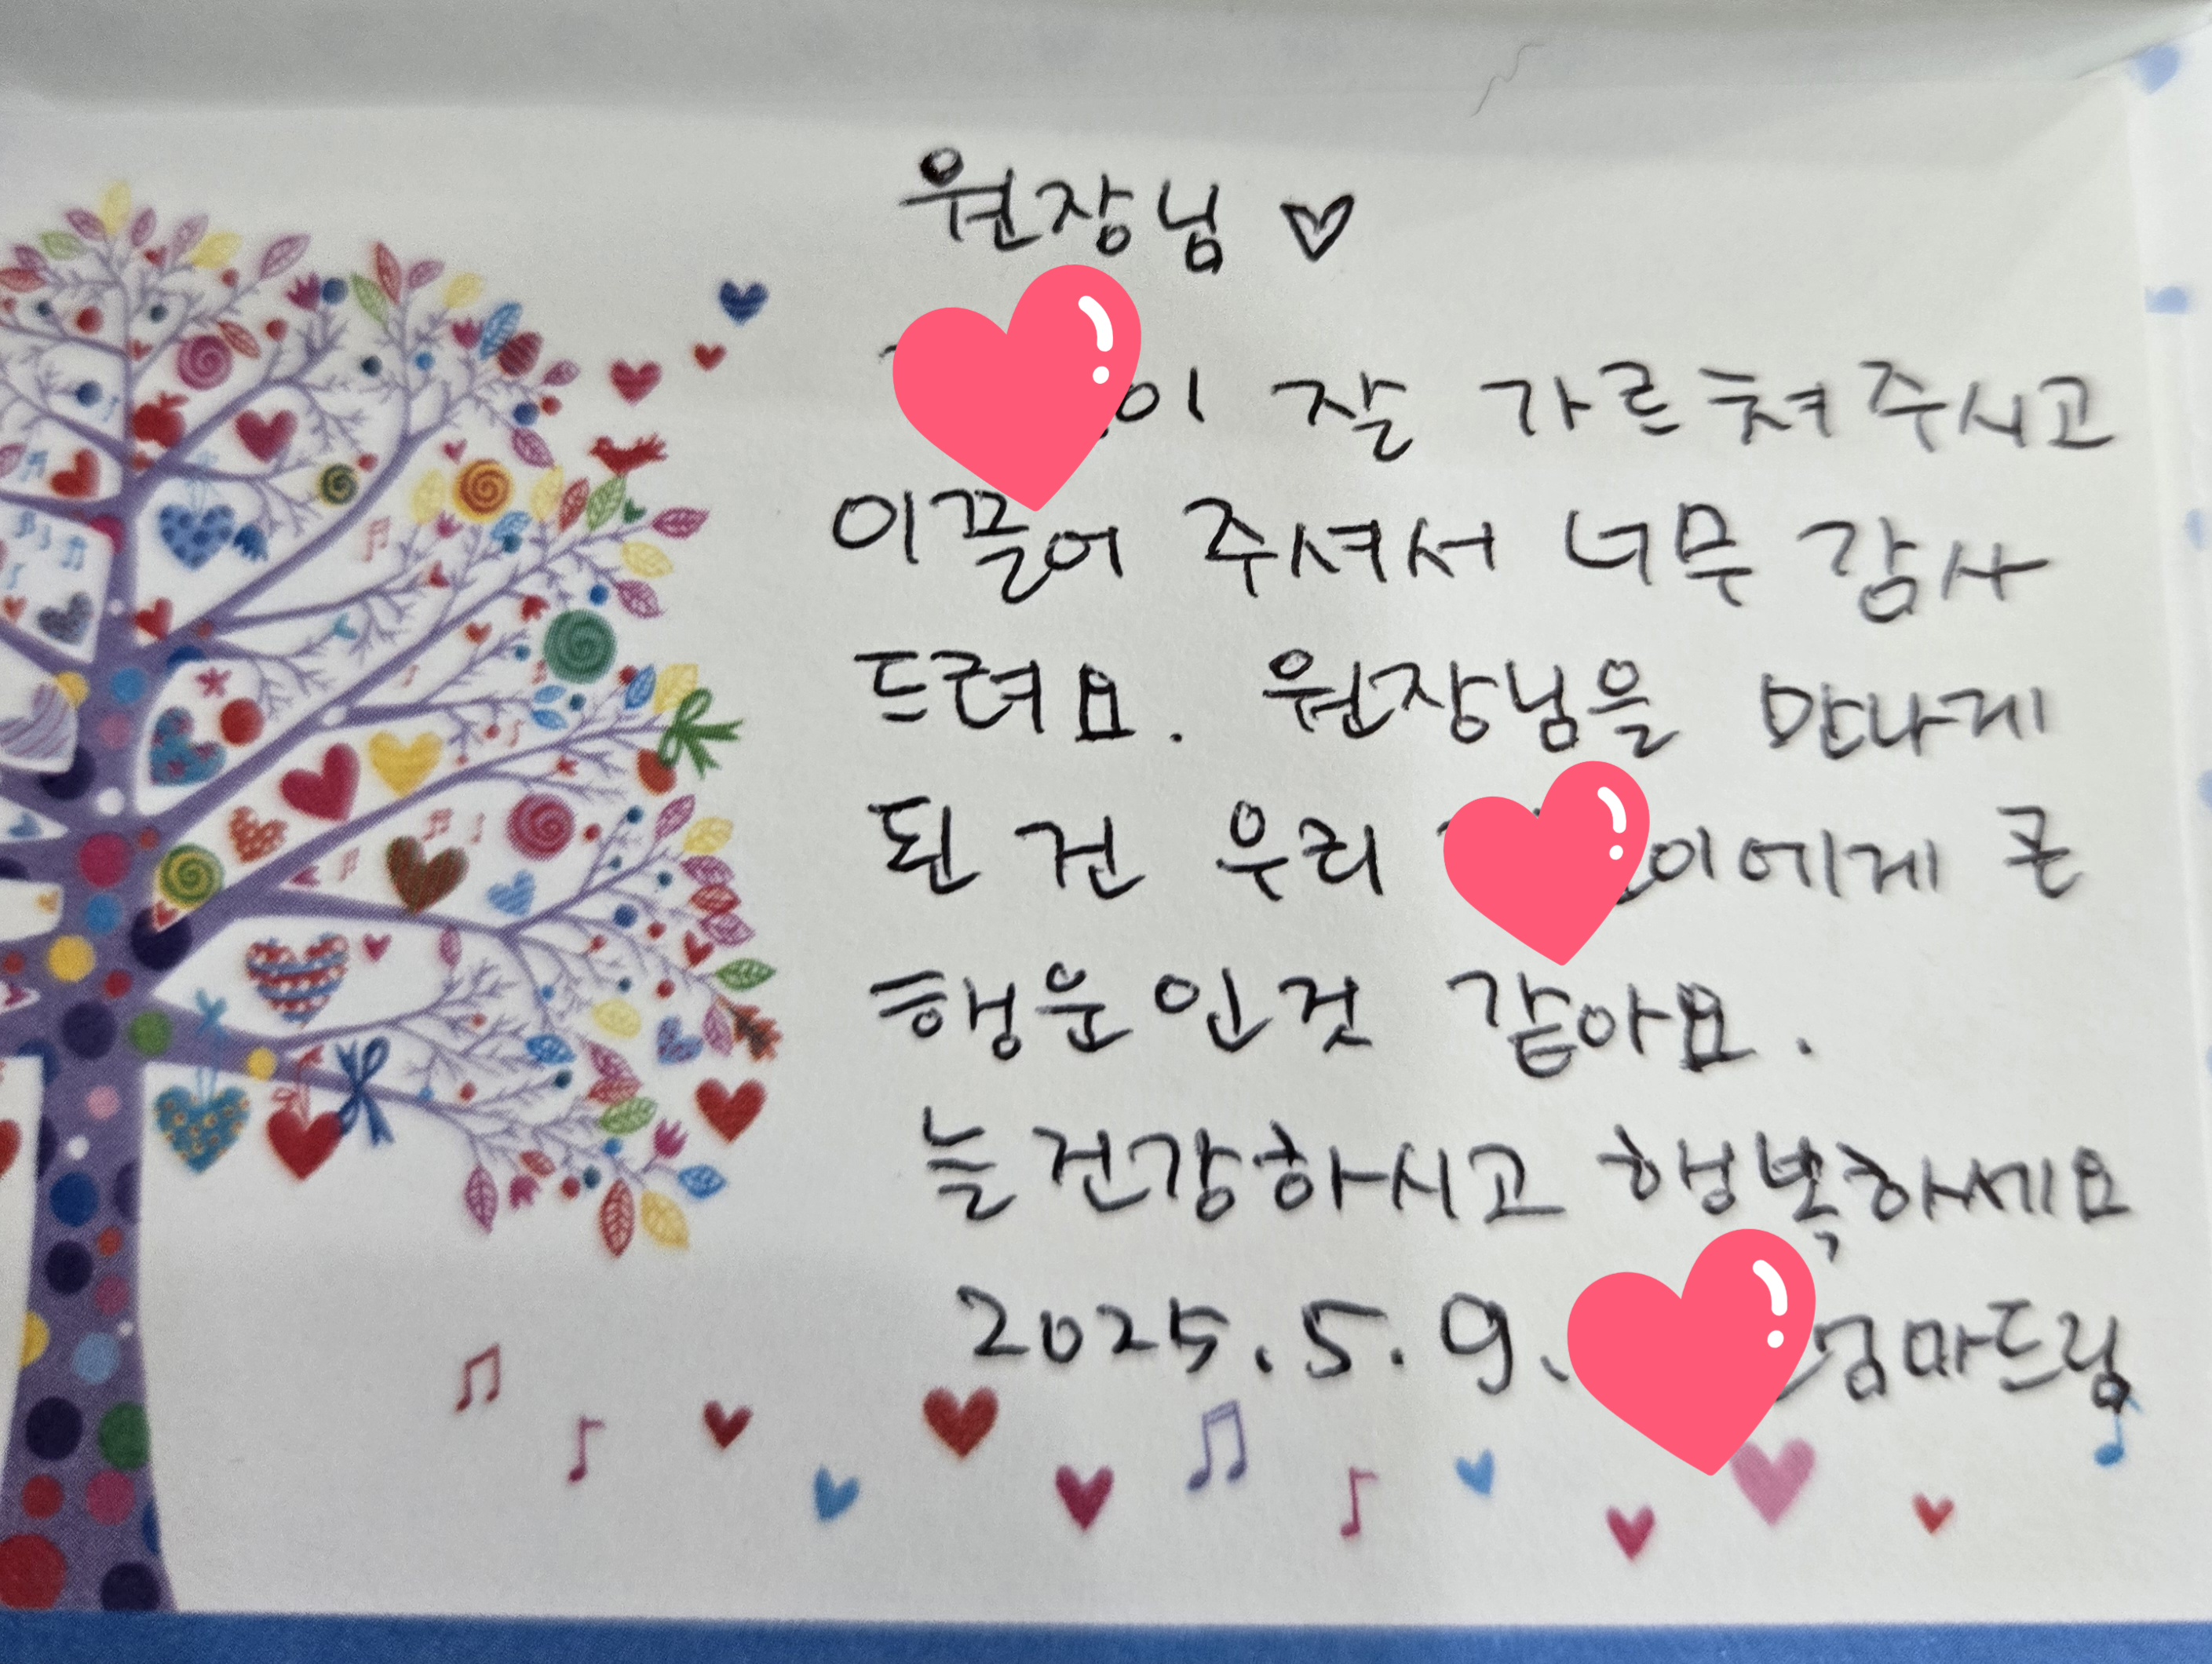 원장님 ♡
이 잘 가르쳐주시고
이끌어 주셔서 너무 감사
드려요. 원장님을 만나게
된 건 우리 이에게 큰
행운인것 같아요.
늘건강하시고 행복하세요
2025.5.9. 엄마드림